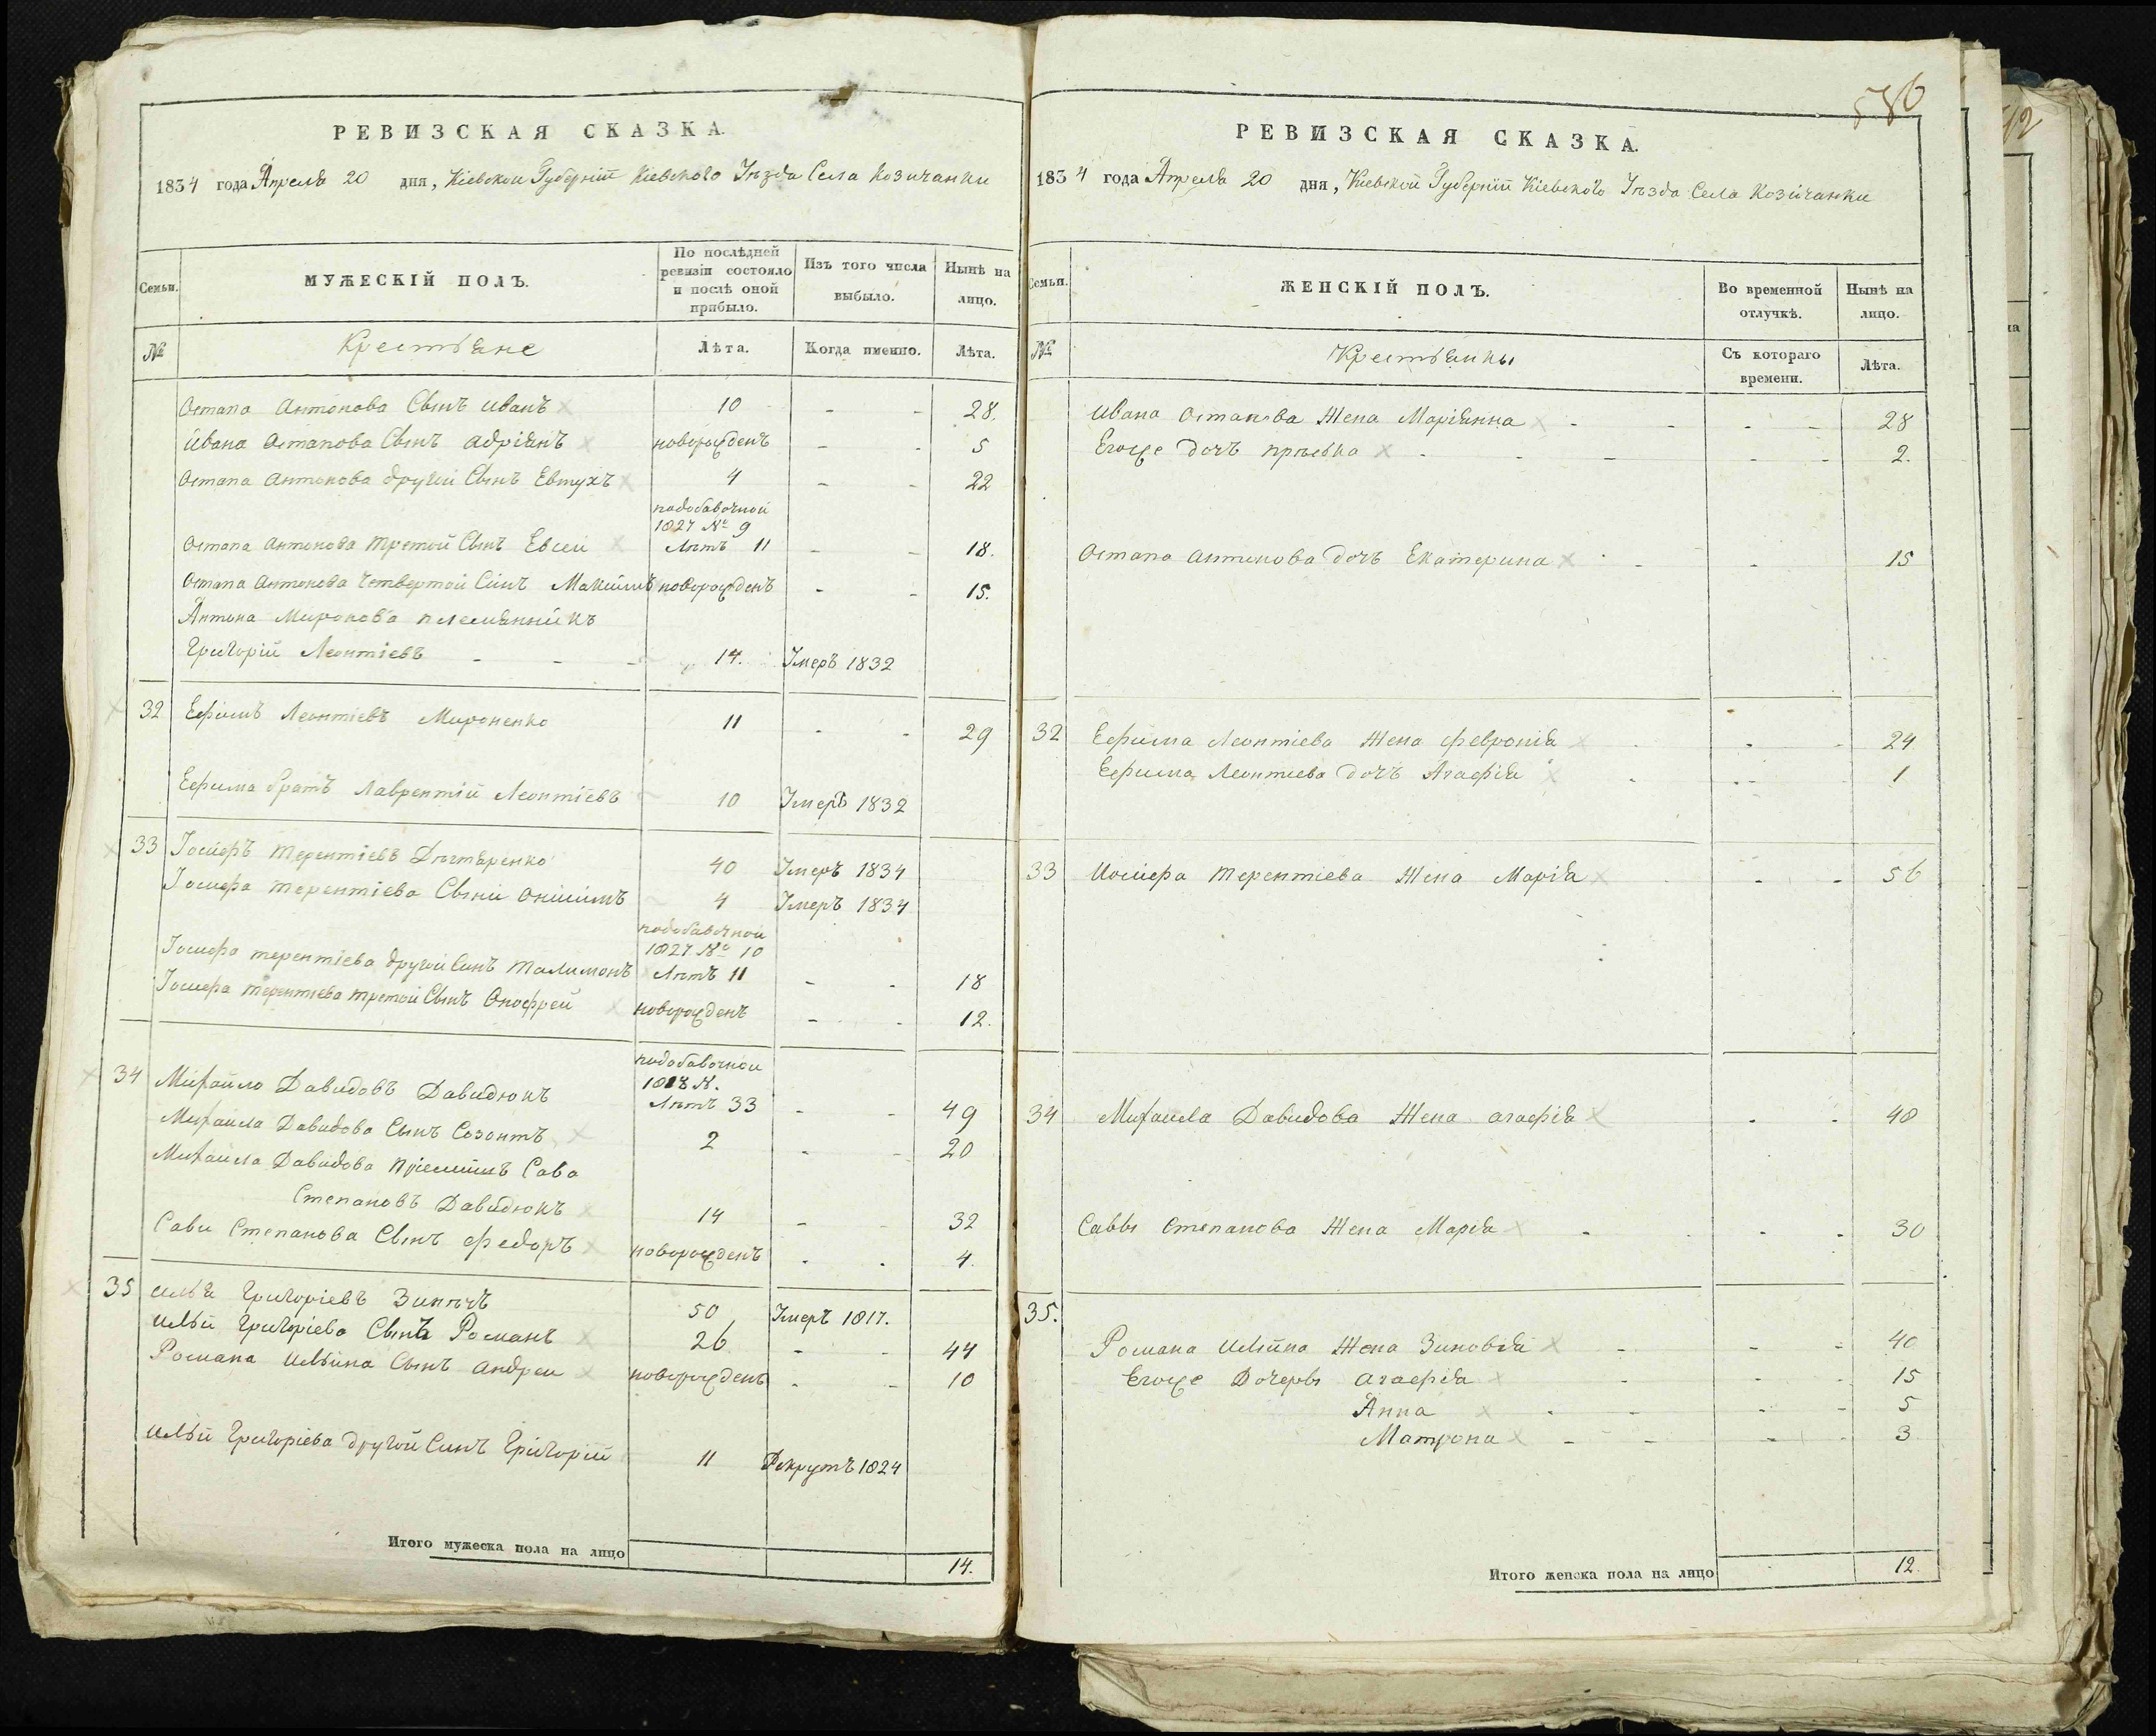 РЕВИЗСКАЯ СКАЗКА.
1834 года Апреля 20 дня, Кіевской Губерніи Кіевского Уѣзда Села Козичанки
Семьи.
МУЖЕСКІЙ ПОЛЪ.
По послѣдней ревизіи состояло и послѣ оной прибыло.
Изъ того числа выбыло.
Нынѣ на лицо.
№
Крестьяне
Лѣта.
Когда именно.
Лѣта.
Остапа Антонова Сынъ Иванъ 10 - - 28.
Ивана Остапова Сынъ Адріянъ новорожденъ - - 5
Остапа Антонова другій Сынъ Евтухъ 4 - - 22
подобавочной
1827 № 9
Остапа Антонова третой Сынъ Евсей Лѣтъ 11 - - 18.
Остапа Антонова четвертой Синъ Макимъ новорожденъ - - 15.
Антона Миронова племянникъ
Григорій Леонтіевъ - - - 14. Умеръ 1832
32 Ефимъ Леонтіевъ Мироненко 11 - - 29
Ефима братъ Лаврентій Леонтіевъ 10 Умеръ 1832
33 Іосифъ Терентіевъ Дѣгтяренко 40 Умеръ 1834
Іосифа Терентіева Сынъ Онисимъ 4 Умеръ 1834
подобавочной
1827 № 10
Іосифа терентіева другой Синъ Талимонъ Лѣтъ 11 - - 18
Іосифа терентіева третой Сынъ Онофрей новорожденъ - - 12.
подобавочной
1818 №.
34 Михайло Давидовъ Давидюкъ Лѣтъ 33 - - 49
Михаила Давидова Сынъ Созонтъ 2 - - 20
Михаила Давидова пріемышъ Сава
Степановъ Давидюкъ 14 - - 32
Сави Степанова Сынъ Федоръ новорожденъ - - 4.
35 Илья Григоріевъ Зинѣчъ 50 Умеръ 1817.
Ильи Григоріева Сынъ Романъ 26 - - 44
Романа Ильина Сынъ Андреи новорожденъ - - 10
Ильи Григоріева другой Синъ Григорій 11 Рекрутъ 1824
Итого мужеска пола на лицо 14.
586
РЕВИЗСКАЯ СКАЗКА.
1834 года Апреля 20 дня, Кіевской Губерніи Кіевского Уѣзда Села Козичанки
Семьи.
ЖЕНСКІЙ ПОЛЪ.
Во временной отлучкѣ.
Нынѣ на лицо.
№
Крестьянкы
Съ котораго времени.
Лѣта.
Ивана Остапова Жена Маріянна - - - - 28
Егоже дочъ - - - - - 2.
Остапа Антонова дочъ Екатерина - - - 15
32 Ефима Леонтіева Жена Февронія - - - 24
Ефима Леонтиева дочъ Агафія - - - 1
33 Иосифа Терентіева Жена Марія - - 56
34 Михаила Давидова Жена агафія - - 48
Саввы Степанова Жена Марія - - - 30
35.
Романа Ильина Жена Зиновія - - - 40
Егоже Дочеры агафія - - - 15
Анна - - - - 5
Матрона - - - - 3
Итого женска пола на лицо 12.